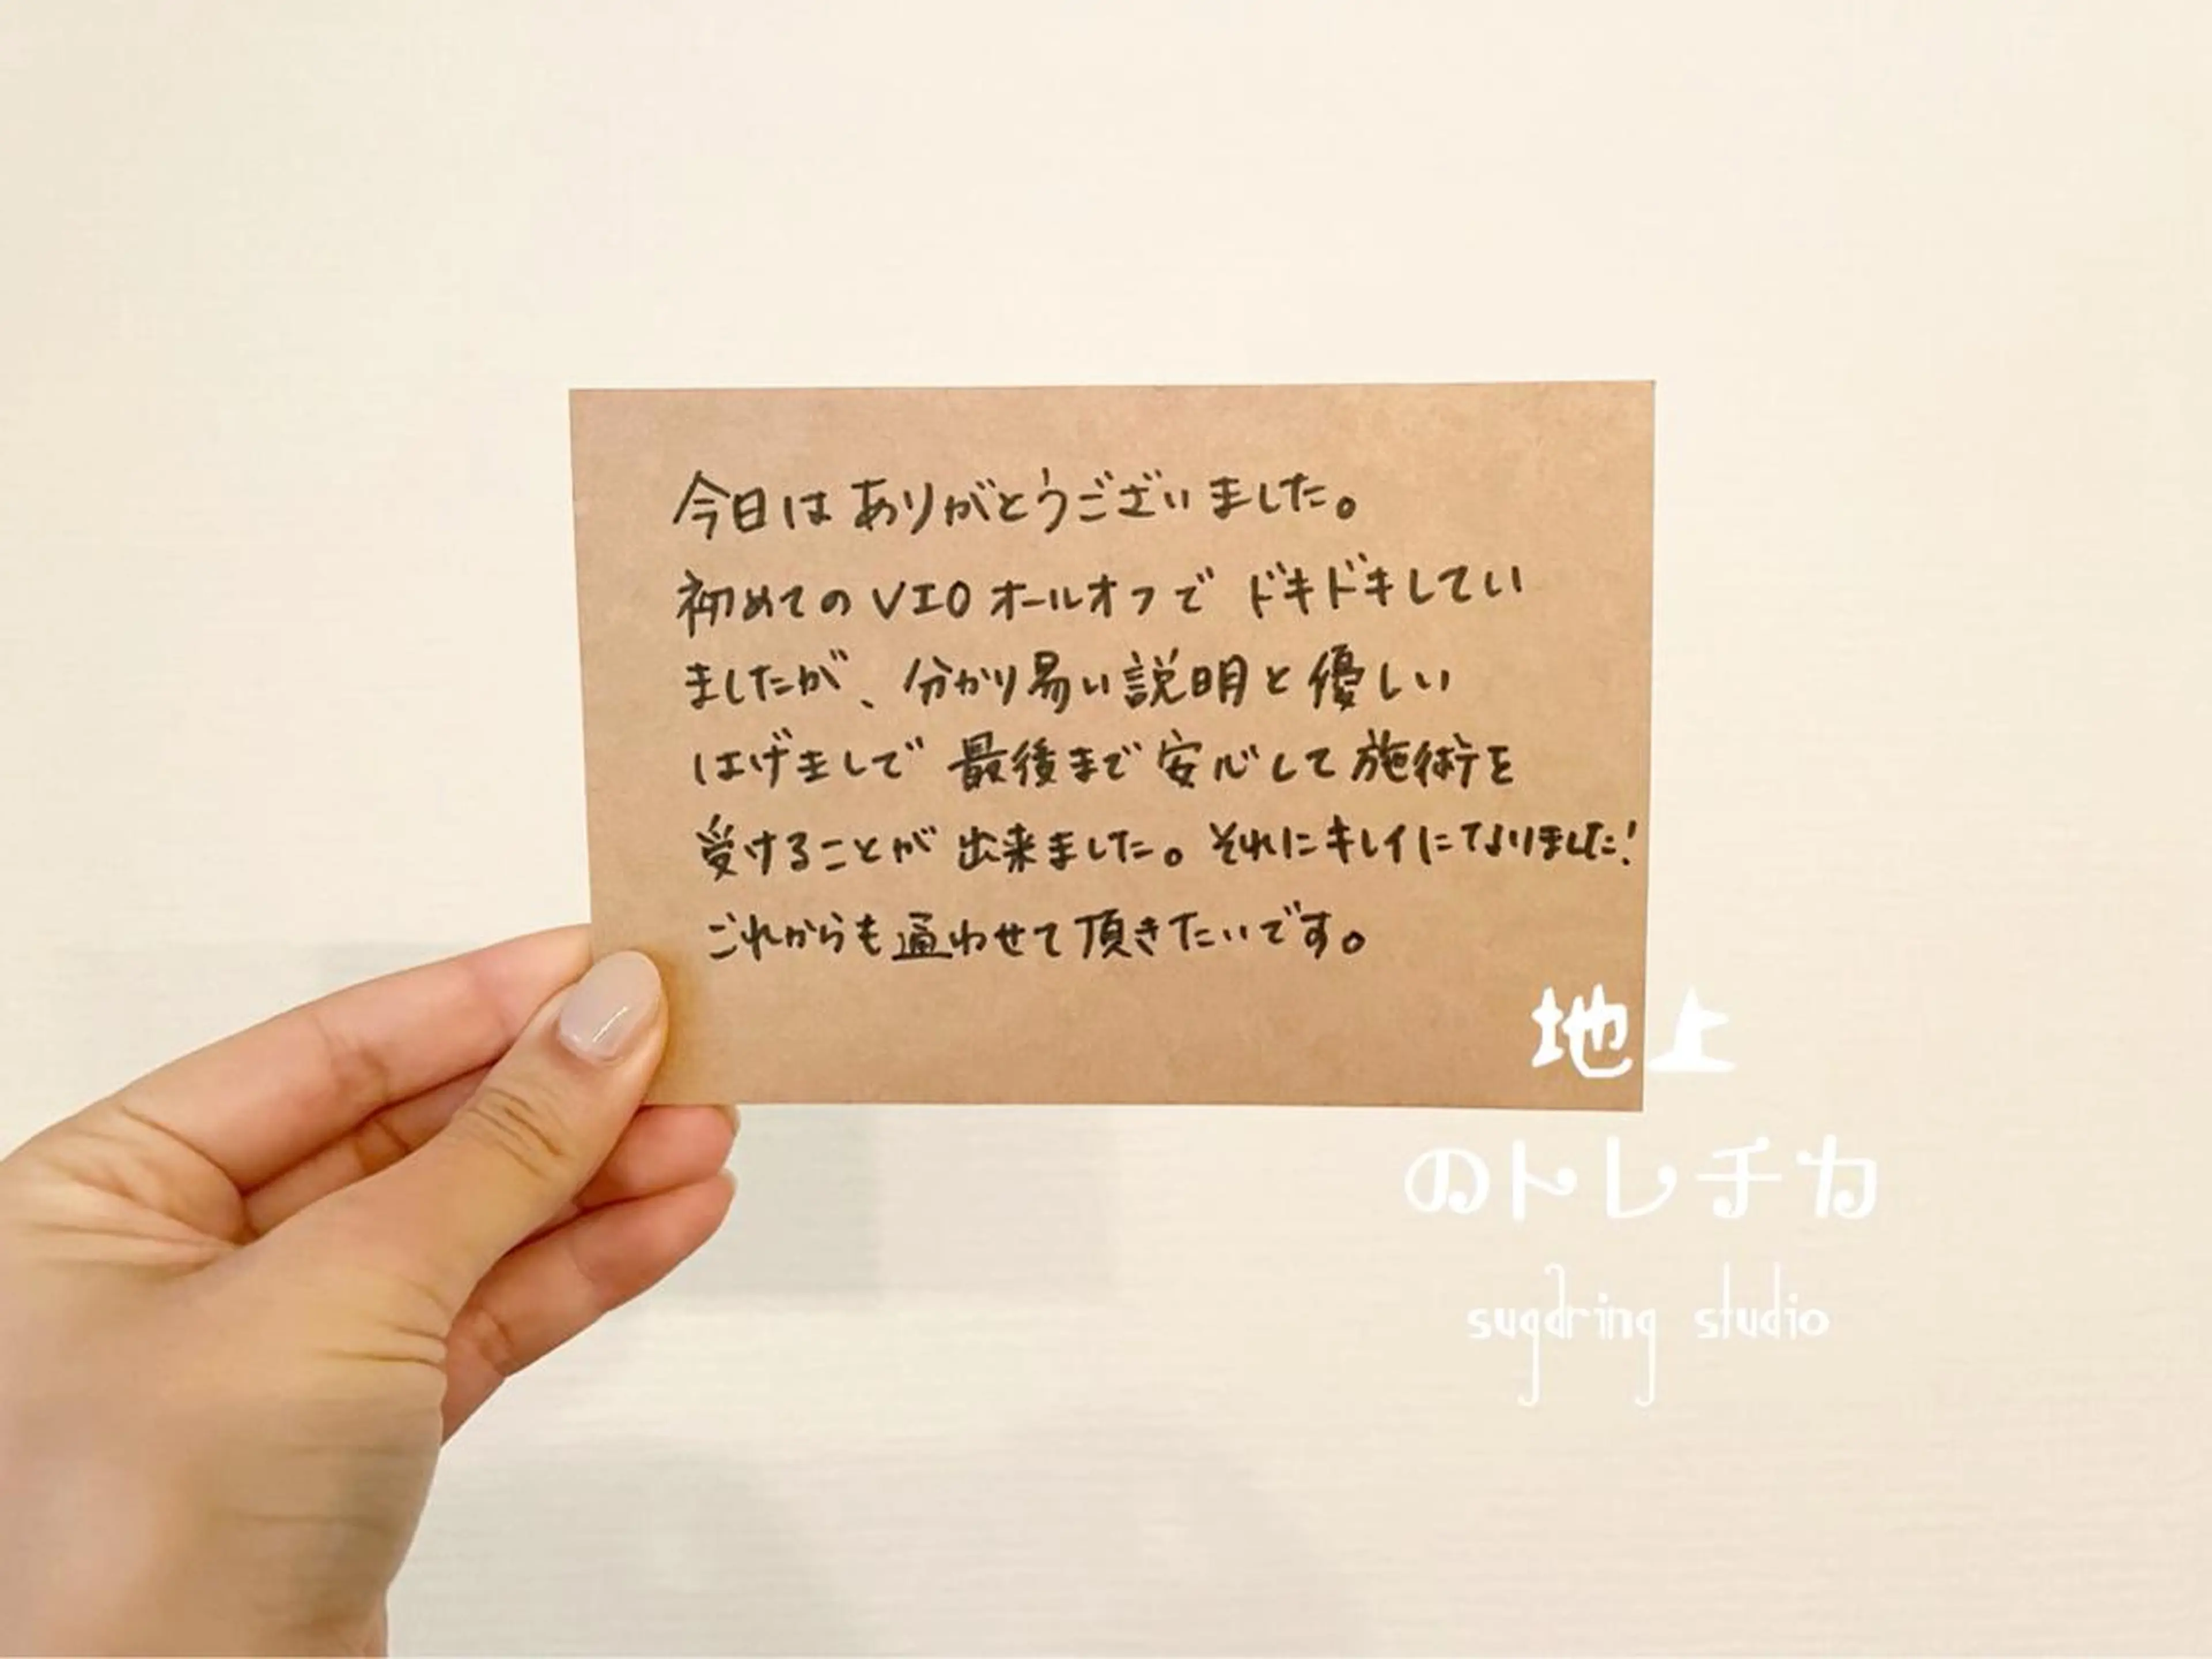 今日はありがとうございました。
初めてのVIOオールオフで ドキドキしてい
ましたが、分かり易い説明と優しい
はげましで 最後まで安心して施術を
受けることが出来ました。それにキレイになりました!
これからも通わせて頂きたいです。
地上
のトレチカ
sugaring studio